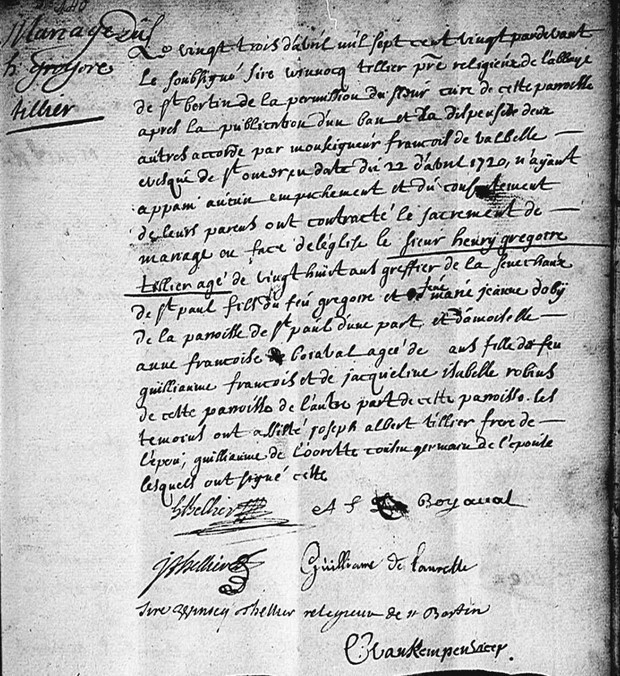 Mariage du S
h Gregoire
tillier
Le vingt trois d'avril mil sept cent vingt pardevant
Le soubsigné sire winnocq tillier pre religieux de l'abbaye
de st bertin de la permission du sieur curé de cette paroisse
apres la publication d'un ban et la dispense de deux
autres accordé par monseigneur francois de valbelle
evesque de st omer en date du 22 d'avril 1720, n'ayant
apparu aucun empechement et du consentement
de leurs parens ont contracté le sacrement de
mariage en face de l'eglise le sieur henry gregoire
tillier agé de vingt huit ans greffier de la senechaux
de st paul fils du feu gregoire et de feue marie jeanne doby
de la paroisse de st paul d'une part, et damoiselle
anne francoise boiaval agée de ans fille de feu
guillianme francois et de jacqueline isabelle robins
de cette paroisse de l'autre part de cette paroisse. les
temoins ont assisté joseph albert tillier frere de
l'epoux, guillianme de cousin germain de l'epouse
lesquels ont signé cette
hthellier A f Boyaval
jAthellier Guilliame de
sire winocq thellier religieux de st Bertin